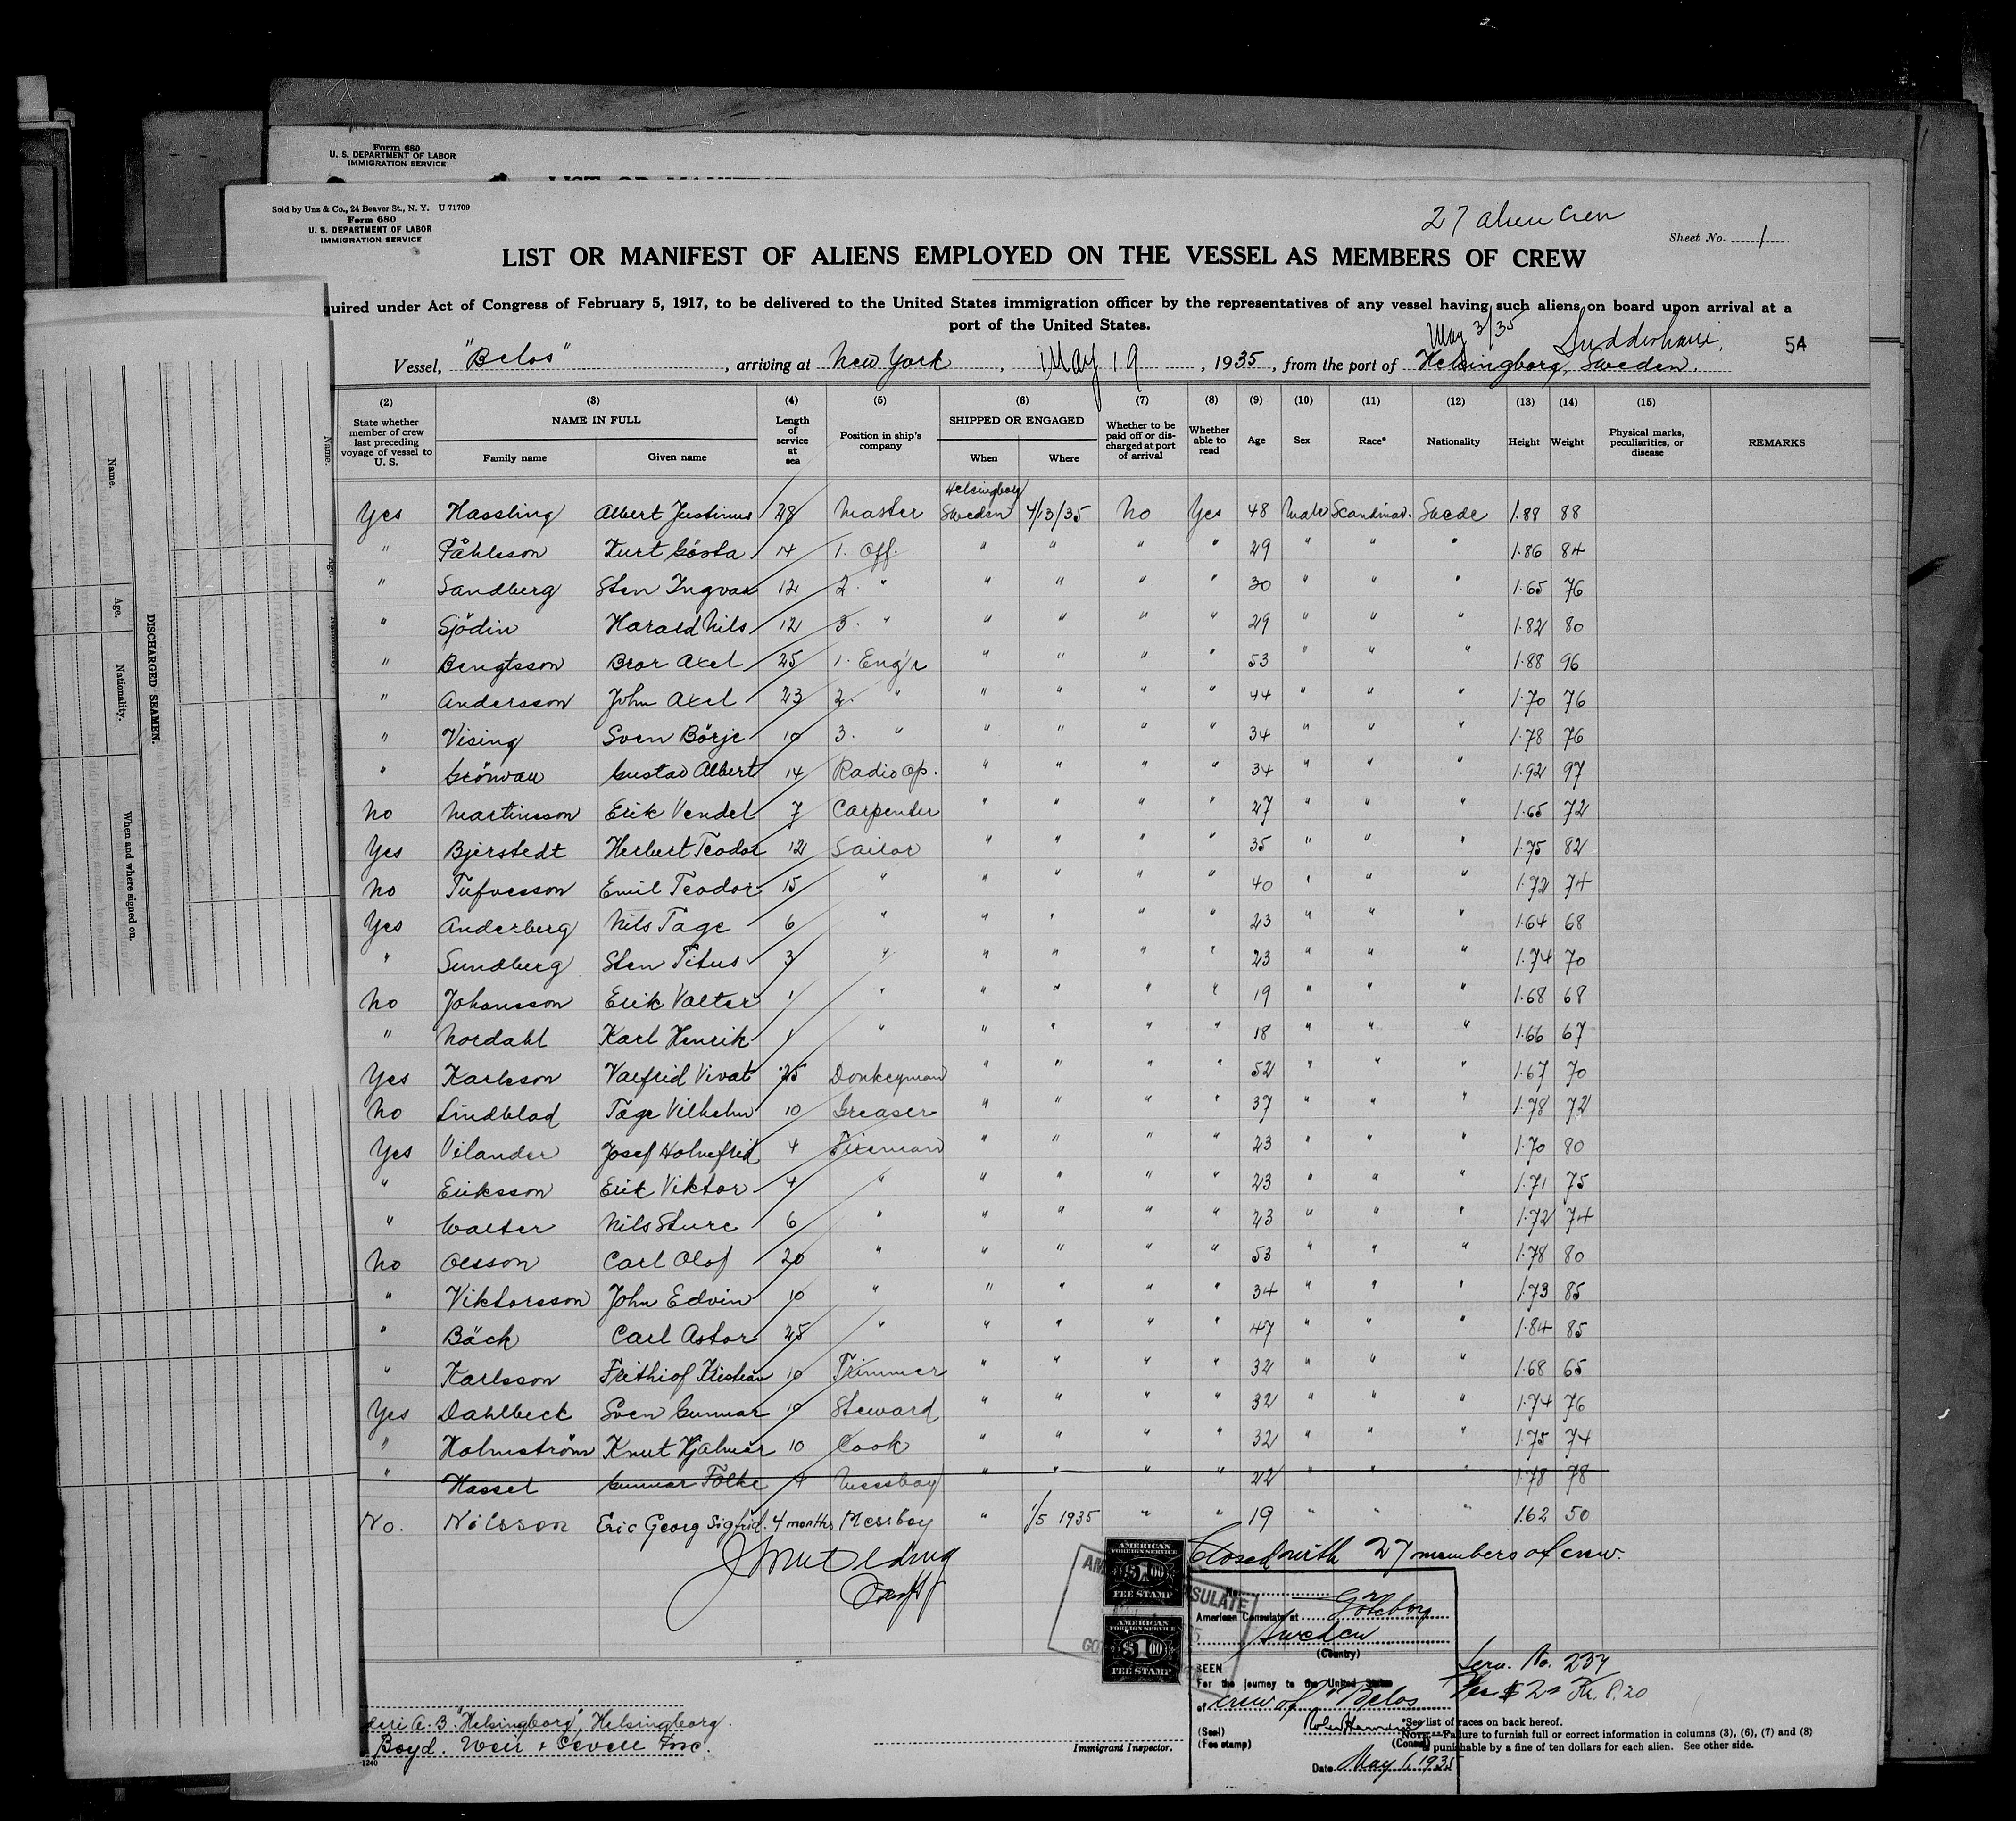 Form 680
U. S. DEPARTMENT OF LABOR
IMMIGRATION SERVICE
Sold by Unz & Co., 24 Beaver St., N. Y. U 71709
Form 680
U. S. DEPARTMENT OF LABOR
IMMIGRATION SERVICE
27 alien Crew
Sheet No. 1
LIST OR MANIFEST OF ALIENS EMPLOYED ON THE VESSEL AS MEMBERS OF CREW
quired under Act of Congress of February 5, 1917, to be delivered to the United States immigration officer by the representatives of any vessel having such aliens on board upon arrival at a
port of the United States.
May 3/35
54
Vessel, "Belos", arriving at New York, May 19, 1935, from the port of Helsingborg, Sweden.
(2) (3) (4) (5) (6) (7) (8) (9) (10) (11) (12) (13) (14) (15)
State whether member of crew last preceding voyage of vessel to U. S. NAME IN FULL Family name Given name Length of service at sea Position in ship's company SHIPPED OR ENGAGED When Where Whether to be paid off or discharged at port of arrival Whether able to read Age Sex Race* Nationality Height Weight Physical marks, peculiarities, or disease REMARKS
Yes Hassling Albert Justinus 28 Master Helsingborg Sweden 4/13/35 No Yes 48 Male Scandinav. Swede 1.88 88
" Påhlsson Kurt Gösta 14 1. Off. " " " " 29 " " " 1.86 84
" Sandberg Sten Ingvar 12 2. " " " " " 30 " " " 1.65 76
" Sjödin Harald Nils 12 3. " " " " " 29 " " " 1.82 80
" Bengtsson Bror Axel 25 1. Eng'r " " " " 53 " " " 1.88 96
" Andersson John Axel 23 2. " " " " " 44 " " " 1.70 76
" Vising Sven Börje 10 3. " " " " " 34 " " " 1.78 76
" Grönvall Gustav Albert 14 Radio Op. " " " " 34 " " " 1.92 97
No Martinsson Erik Vendel 7 Carpenter " " " " 27 " " " 1.65 72
Yes Bjerstedt Herbert Teodor 12 Sailor " " " " 35 " " " 1.75 82
No Tufvesson Emil Teodor 15 " " " " " 40 " " " 1.72 74
Yes Anderberg Nils Tage 6 " " " " " 23 " " " 1.64 68
" Sundberg Sten Titus 3 " " " " " 23 " " " 1.74 70
No Johansson Erik Valter 1 " " " " " 19 " " " 1.68 68
" Nordahl Karl Henrik 1 " " " " " 18 " " " 1.66 67
Yes Karlsson Valfrid Vivat 25 Donkeyman " " " " 52 " " " 1.67 70
No Lindblad Tage Vilhelm 10 Greaser " " " " 37 " " " 1.78 72
Yes Vilander Josef Holmfrid 4 Fireman " " " " 23 " " " 1.70 80
" Eriksson Erik Viktor 4 " " " " " 23 " " " 1.71 75
" Walter Nils Sture 6 " " " " " 23 " " " 1.72 74
No Olsson Carl Olof 20 " " " " " 53 " " " 1.78 80
" Viktorsson John Edvin 10 " " " " " 34 " " " 1.73 85
" Bäck Carl Astor 25 " " " " " 47 " " " 1.84 85
" Karlsson Frithiof Kristian 10 Trimmer " " " " 32 " " " 1.68 65
Yes Dahlbeck Sven Gunnar 10 Steward " " " " 32 " " " 1.74 76
" Holmström Knut Hjalmar 10 Cook " " " " 32 " " " 1.75 74
" Hassel Gunnar Folke 4 Messboy " " " " 22 " " " 1.78 78
No. Nilsson Eric Georg Sigfrid. 4 months Messboy " 1/5 1935 " " 19 " " " 1.62 50
Closed with 27 members of crew.
AMERICAN
FOREIGN SERVICE
$1.00
FEE STAMP
AMERICAN
FOREIGN SERVICE
$1.00
FEE STAMP
No.
American Consulate at Göteborg
Sweden
(Country)
SEEN
For the journey to the United States
of crew of "Belos
(Seal)
(Fee stamp)
(Consul)
Date May 1, 1935
Serv. No. 237
Fee $2= Kr. 8.20
deri A. B. "Helsingborg", Helsingborg.
Boyd. Weir & Sewell Inc.
-1240
Immigrant Inspector.
*See list of races on back hereof.
NOTE.—Failure to furnish full or correct information in columns (3), (6), (7) and (8)
is punishable by a fine of ten dollars for each alien. See other side.
DISCHARGED SEAMEN.
Name. Age. Nationality. When and where signed on.
Name.